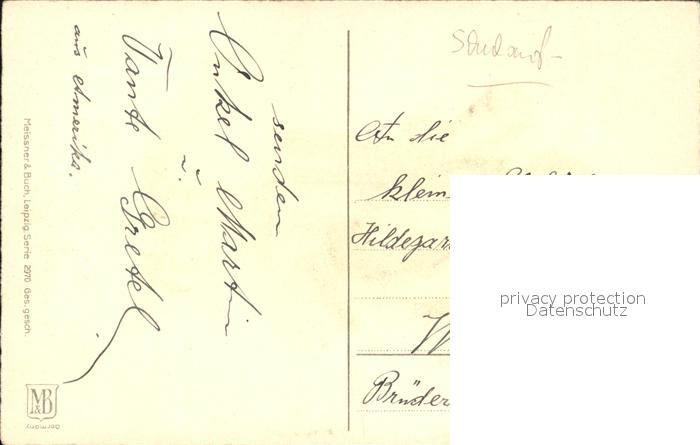 senden
Onkel Martin
u.
Tante Gretel
aus Amerika.
Meissner & Buch, Leipzig. Serie 2970 Ges. gesch.
M&B
Germany
An die
klein
Hildegar
W
Brüder
privacy protection
Datenschutz